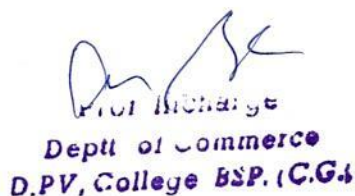 Prof Incharge
Deptt of Commerce
D.PV, College BSP. (C.G.)